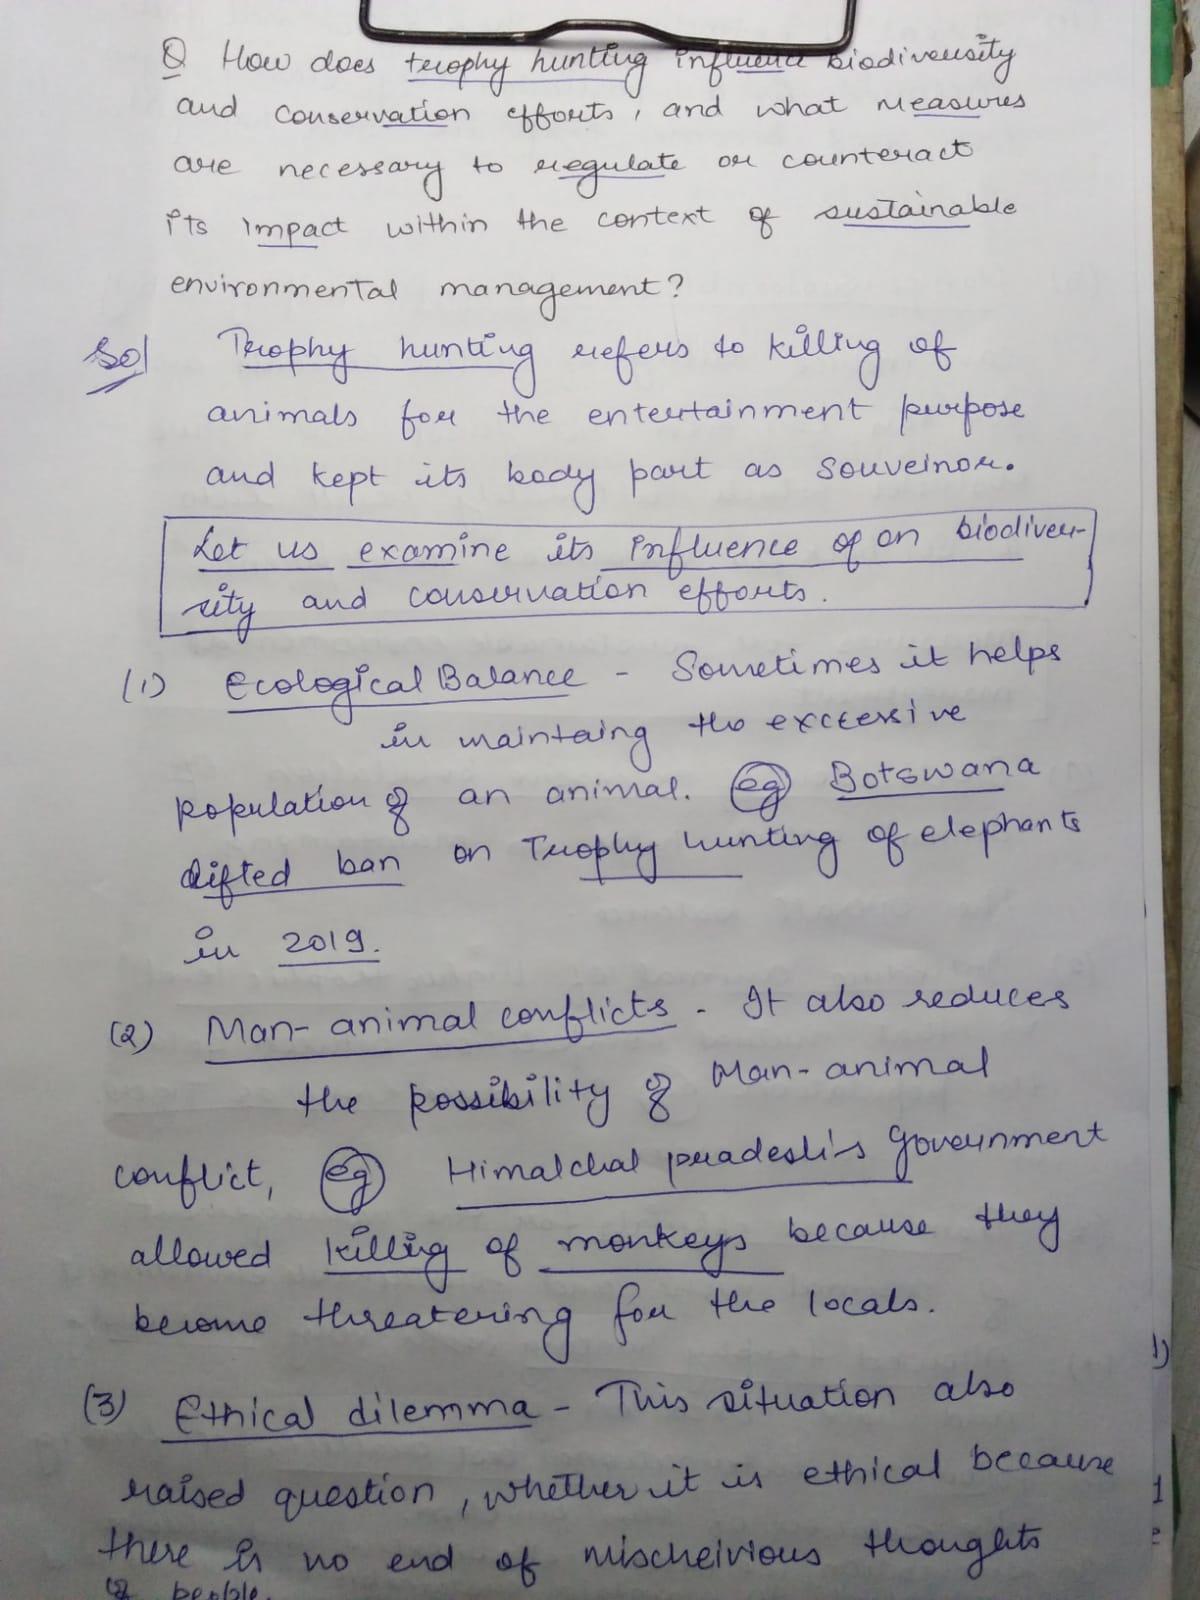 Q How does trophy hunting influence biodiversity
and conservation efforts, and what measures
are necessary to regulate or counteract
its impact within the context of sustainable
environmental management?
Sol Trophy hunting refers to killing of
animals for the entertainment purpose
and kept its body part as souveinor.
Let us examine its influence of on biodiver-
sity and conservation efforts.
(1) Ecological Balance - Sometimes it helps
in maintaing the excessive
population of an animal. eg Botswana
lifted ban on Trophy hunting of elephants
in 2019.
(2) Man-animal conflicts - It also reduces
the possibility of Man-animal
conflict, eg Himalchal pradesh's government
allowed killing of monkeys because they
become threatering for the locals.
(3) Ethical dilemma - This situation also
raised question, whether it is ethical because
there is no end of mischeivious thoughts
of people.